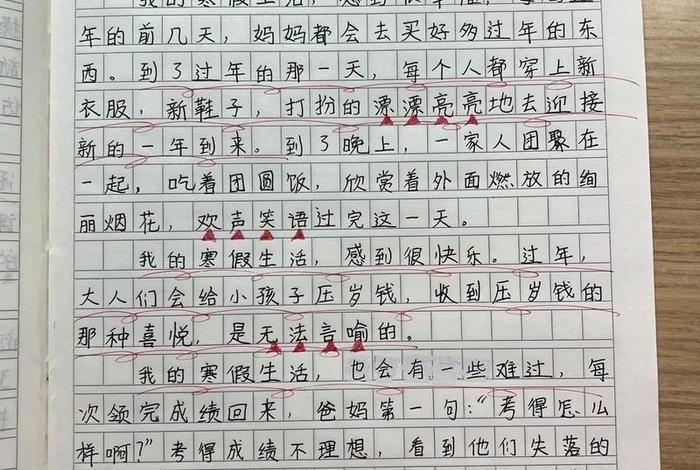 我的寒假生活，感到很
年的前几天，妈妈都会去买好多过年的东
西。到了过年的那一天，每个人都穿上新
衣服，新鞋子，打扮的漂漂亮亮地去迎接
新的一年到来。到了晚上，一家人团聚在
一起，吃着团圆饭，欣赏着外面燃放的绚
丽烟花，欢声笑语过完这一天。
我的寒假生活，感到很快乐。过年，
大人们会给小孩子压岁钱，收到压岁钱的
那种喜悦，是无法言喻的。
我的寒假生活，也会有一些难过，每
次领完成绩回来，爸妈第一句："考得怎么
样啊？"考得成绩不理想，看到他们失落的